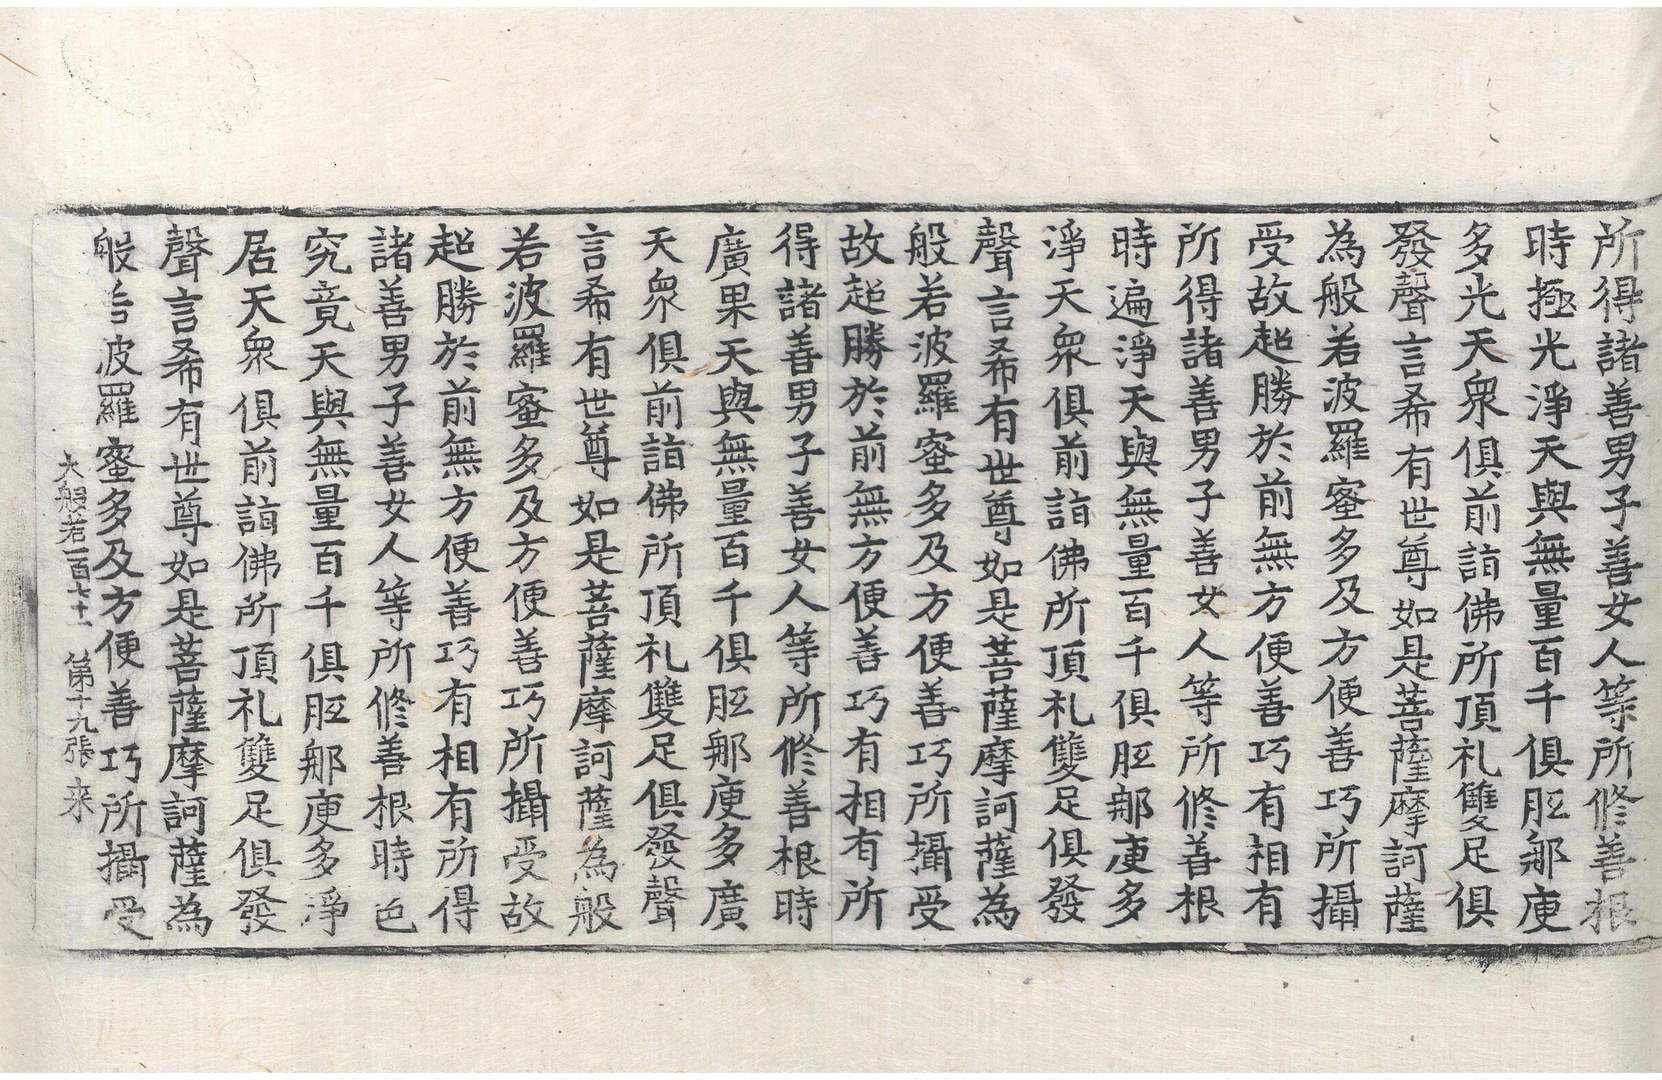 所得諸善男子善女人等所修善根
時極光淨天與無量百千俱胝那庾
多光天衆俱前詣佛所頂礼雙足俱
發聲言希有世尊如是菩薩摩訶薩
為般若波羅蜜多及方便善巧所攝
受故超勝於前無方便善巧有相有
所得諸善男子善女人等所修善根
時遍淨天與無量百千俱胝那庾多
淨天衆俱前詣佛所頂礼雙足俱發
聲言希有世尊如是菩薩摩訶薩為
般若波羅蜜多及方便善巧所攝受
故超勝於前無方便善巧有相有所
得諸善男子善女人等所修善根時
廣果天與無量百千俱胝那庾多廣
天衆俱前詣佛所頂礼雙足俱發聲
言希有世尊如是菩薩摩訶薩為般
若波羅蜜多及方便善巧所攝受故
超勝於前無方便善巧有相有所得
諸善男子善女人等所修善根時色
究竟天與無量百千俱胝那庾多淨
居天衆俱前詣佛所頂礼雙足俱發
聲言希有世尊如是菩薩摩訶薩為
般若波羅蜜多及方便善巧所攝受
大般若一百七十一 第十九張 来